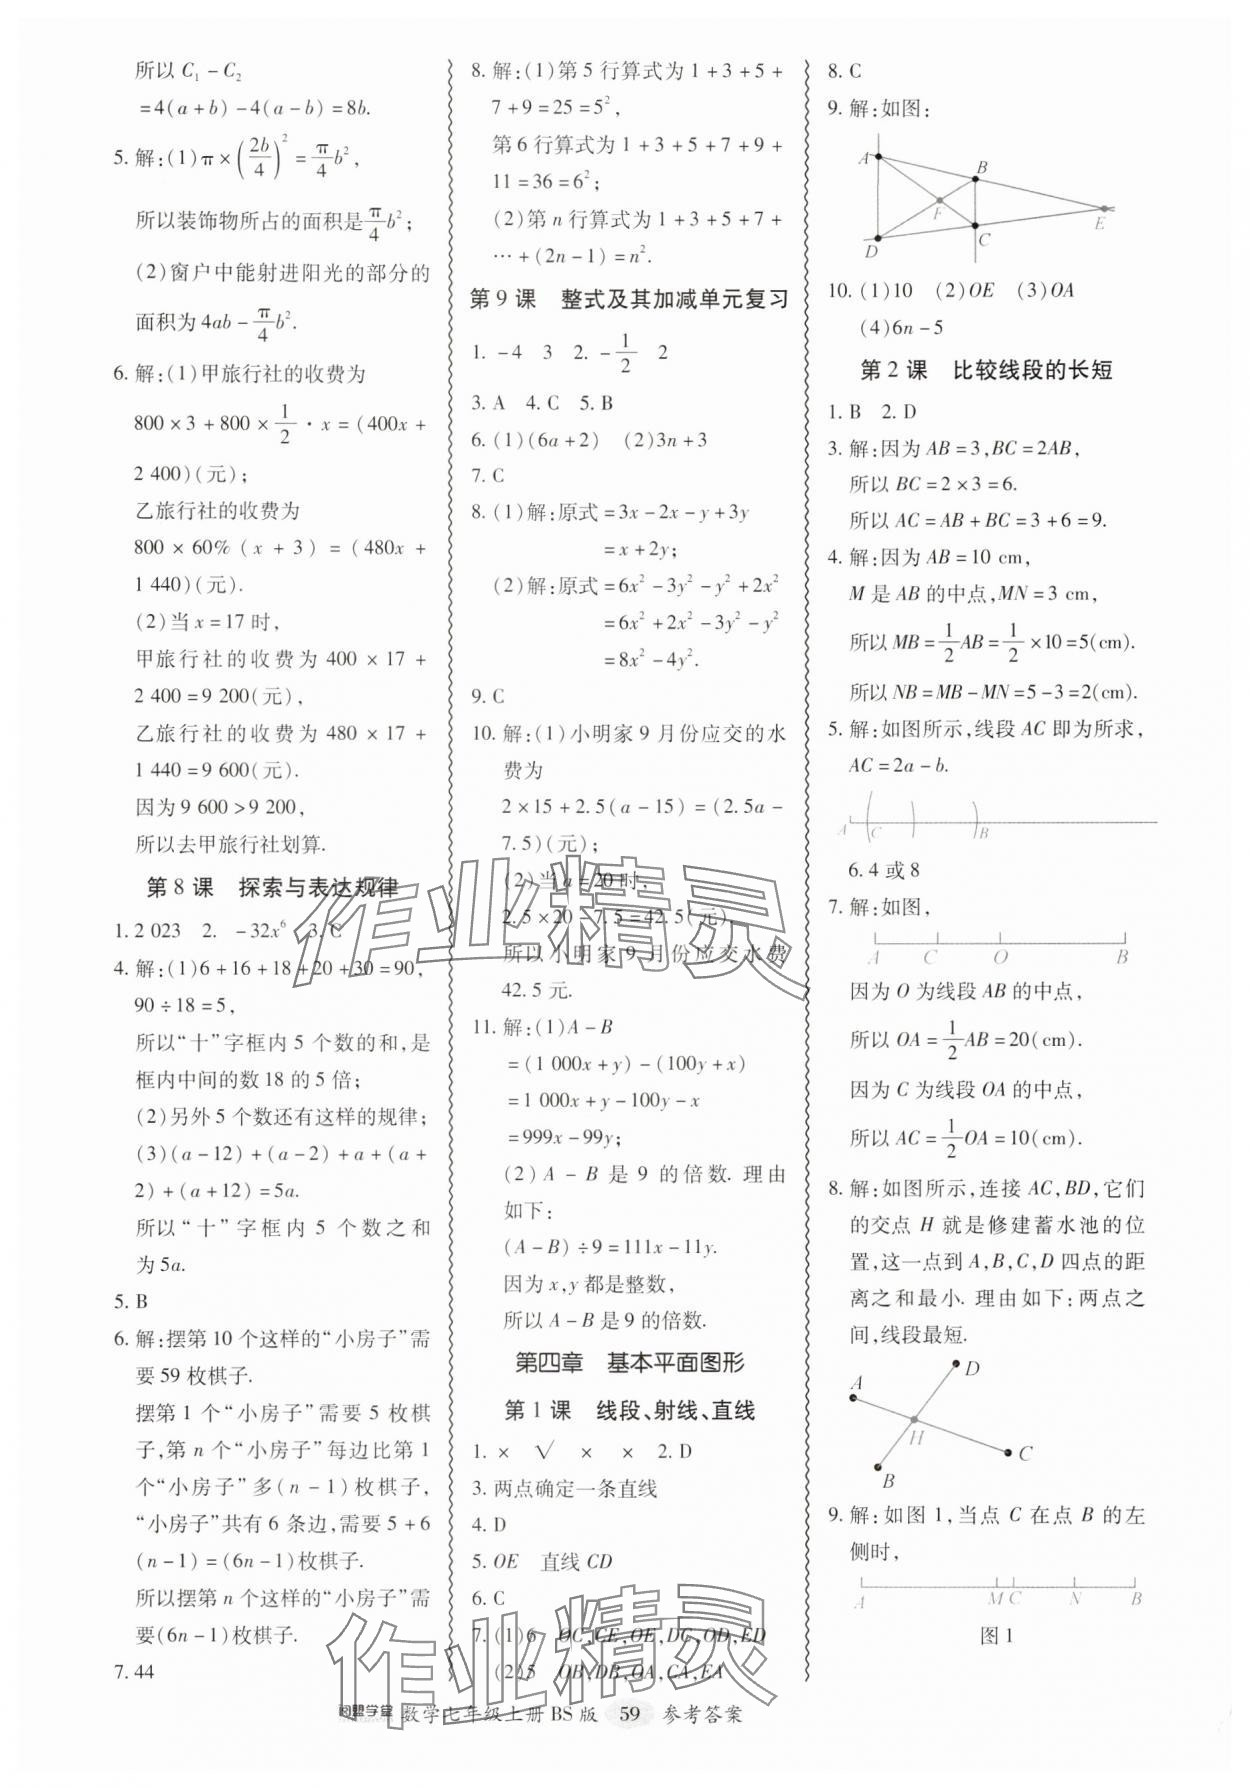 所以 C₁-C₂
=4(a+b)-4(a-b)=8b.
5. 解:(1)π×(2b/4)²=π/4 b²,
所以装饰物所占的面积是π/4 b²;
(2)窗户中能射进阳光的部分的
面积为 4ab-π/4 b².
6. 解:(1)甲旅行社的收费为
800×3+800×1/2·x=(400x+
2 400)(元);
乙旅行社的收费为
800×60%(x+3)=(480x+
1 440)(元).
(2)当 x=17 时,
甲旅行社的收费为 400×17+
2 400=9 200(元),
乙旅行社的收费为 480×17+
1 440=9 600(元).
因为 9 600>9 200,
所以去甲旅行社划算.
第 8 课 探索与表达规律
1. 2 023 2. -32x⁶ 3. C
4. 解:(1)6+16+18+20+30=90,
90÷18=5,
所以“十”字框内 5 个数的和,是
框内中间的数 18 的 5 倍;
(2)另外 5 个数还有这样的规律;
(3)(a-12)+(a-2)+a+(a+
2)+(a+12)=5a.
所以“十”字框内 5 个数之和
为 5a.
5. B
6. 解:摆第 10 个这样的“小房子”需
要 59 枚棋子.
摆第 1 个“小房子”需要 5 枚棋
子,第 n 个“小房子”每边比第 1
个“小房子”多(n-1)枚棋子,
“小房子”共有 6 条边,需要 5+6
(n-1)=(6n-1)枚棋子.
所以摆第 n 个这样的“小房子”需
要(6n-1)枚棋子.
7. 44
8. 解:(1)第 5 行算式为 1+3+5+
7+9=25=5²,
第 6 行算式为 1+3+5+7+9+
11=36=6²;
(2)第 n 行算式为 1+3+5+7+
…+(2n-1)=n².
第 9 课 整式及其加减单元复习
1. -4 3 2. -1/2 2
3. A 4. C 5. B
6. (1)(6a+2) (2)3n+3
7. C
8. (1)解:原式=3x-2x-y+3y
=x+2y;
(2)解:原式=6x²-3y²-y²+2x²
=6x²+2x²-3y²-y²
=8x²-4y².
9. C
10. 解:(1)小明家 9 月份应交的水
费为
2×15+2.5(a-15)=(2.5a-
7.5)(元);
(2)当 a=20 时,
2.5×20-7.5=42.5(元),
所以小明家 9 月份应交水费
42.5 元.
11. 解:(1)A-B
=(1 000x+y)-(100y+x)
=1 000x+y-100y-x
=999x-99y;
(2)A-B 是 9 的倍数. 理由
如下:
(A-B)÷9=111x-11y.
因为 x,y 都是整数,
所以 A-B 是 9 的倍数.
第四章 基本平面图形
第 1 课 线段、射线、直线
1. × √ × × 2. D
3. 两点确定一条直线
4. D
5. OE 直线 CD
6. C
7. (1)6 OC,CE,OE,DC,OD,ED
(2)5 OB,DB,OA,CA,EA
8. C
9. 解:如图:
A
B
F
E
D
C
10. (1)10 (2)OE (3)OA
(4)6n-5
第 2 课 比较线段的长短
1. B 2. D
3. 解:因为 AB=3,BC=2AB,
所以 BC=2×3=6.
所以 AC=AB+BC=3+6=9.
4. 解:因为 AB=10 cm,
M 是 AB 的中点,MN=3 cm,
所以 MB=1/2 AB=1/2×10=5(cm).
所以 NB=MB-MN=5-3=2(cm).
5. 解:如图所示,线段 AC 即为所求,
AC=2a-b.
A C B
6. 4 或 8
7. 解:如图,
A C O B
因为 O 为线段 AB 的中点,
所以 OA=1/2 AB=20(cm).
因为 C 为线段 OA 的中点,
所以 AC=1/2 OA=10(cm).
8. 解:如图所示,连接 AC,BD,它们
的交点 H 就是修建蓄水池的位
置,这一点到 A,B,C,D 四点的距
离之和最小. 理由如下:两点之
间,线段最短.
D
A
H
C
B
9. 解:如图 1,当点 C 在点 B 的左
侧时,
A M C N B
图 1
作业精灵
作业精灵
阅盟学堂 数学七年级上册 BS 版 59 参考答案